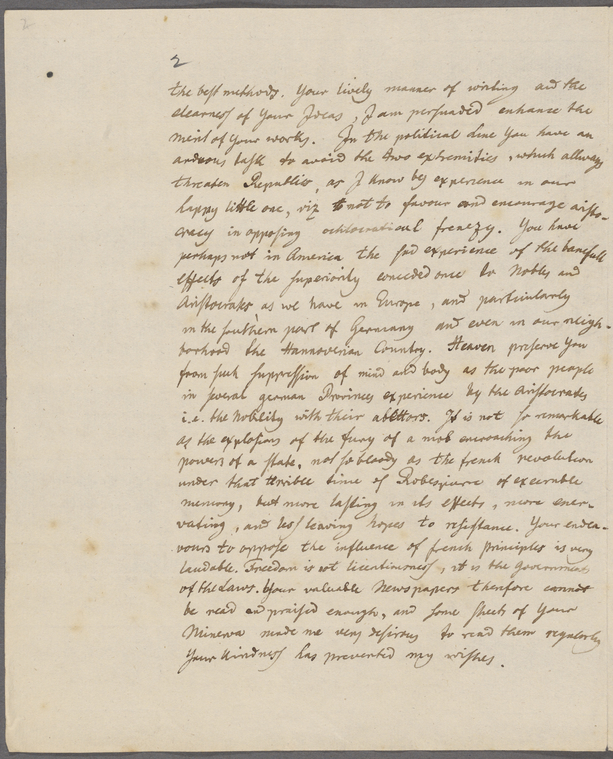 2
2
the best methods. Your lively manner of writing and the
clearness of Your Ideas, I am persuaded enhance the
merit of Your works. In the political Line You have an
arduous task to avoid the two extremities, which allways
threaten Republics, as I know by experience in our
happy little one, viz not to favour and encourage aristo-
cracy in opposing ochlocratical frenezy. You have
perhaps not in America the sad experience of the banefull
effects of the superiority conceded once to Nobles and
Aristocrates as we have in Europe, and particularly
in the southern part of Germany and even in our neigh-
borhood the Hannoverian Country. Heaven preserve You
from such suppression of mind and body as the poor people
in several german Provinces experience by the Aristocrates
i.e. the Nobility with their abettors. It is not so remarkable
as the explosions of the fury of a mob encroaching the
powers of a state, not so bloody as the french revolution
under that terrible time of Robespierre of execrable
memory, but more lasting in its effects, more ener-
vating, and less leaving hopes to resistance. Your endea-
vours to oppose the influence of french principles is very
laudable. Freedom is not licentiousness, it is the Government
of the Laws. Your valuable Newspapers therefore cannot
be read and praised enough, and some sheets of Your
Minerva made me very desirous to read them regularly
Your kindness has prevented my wishes.